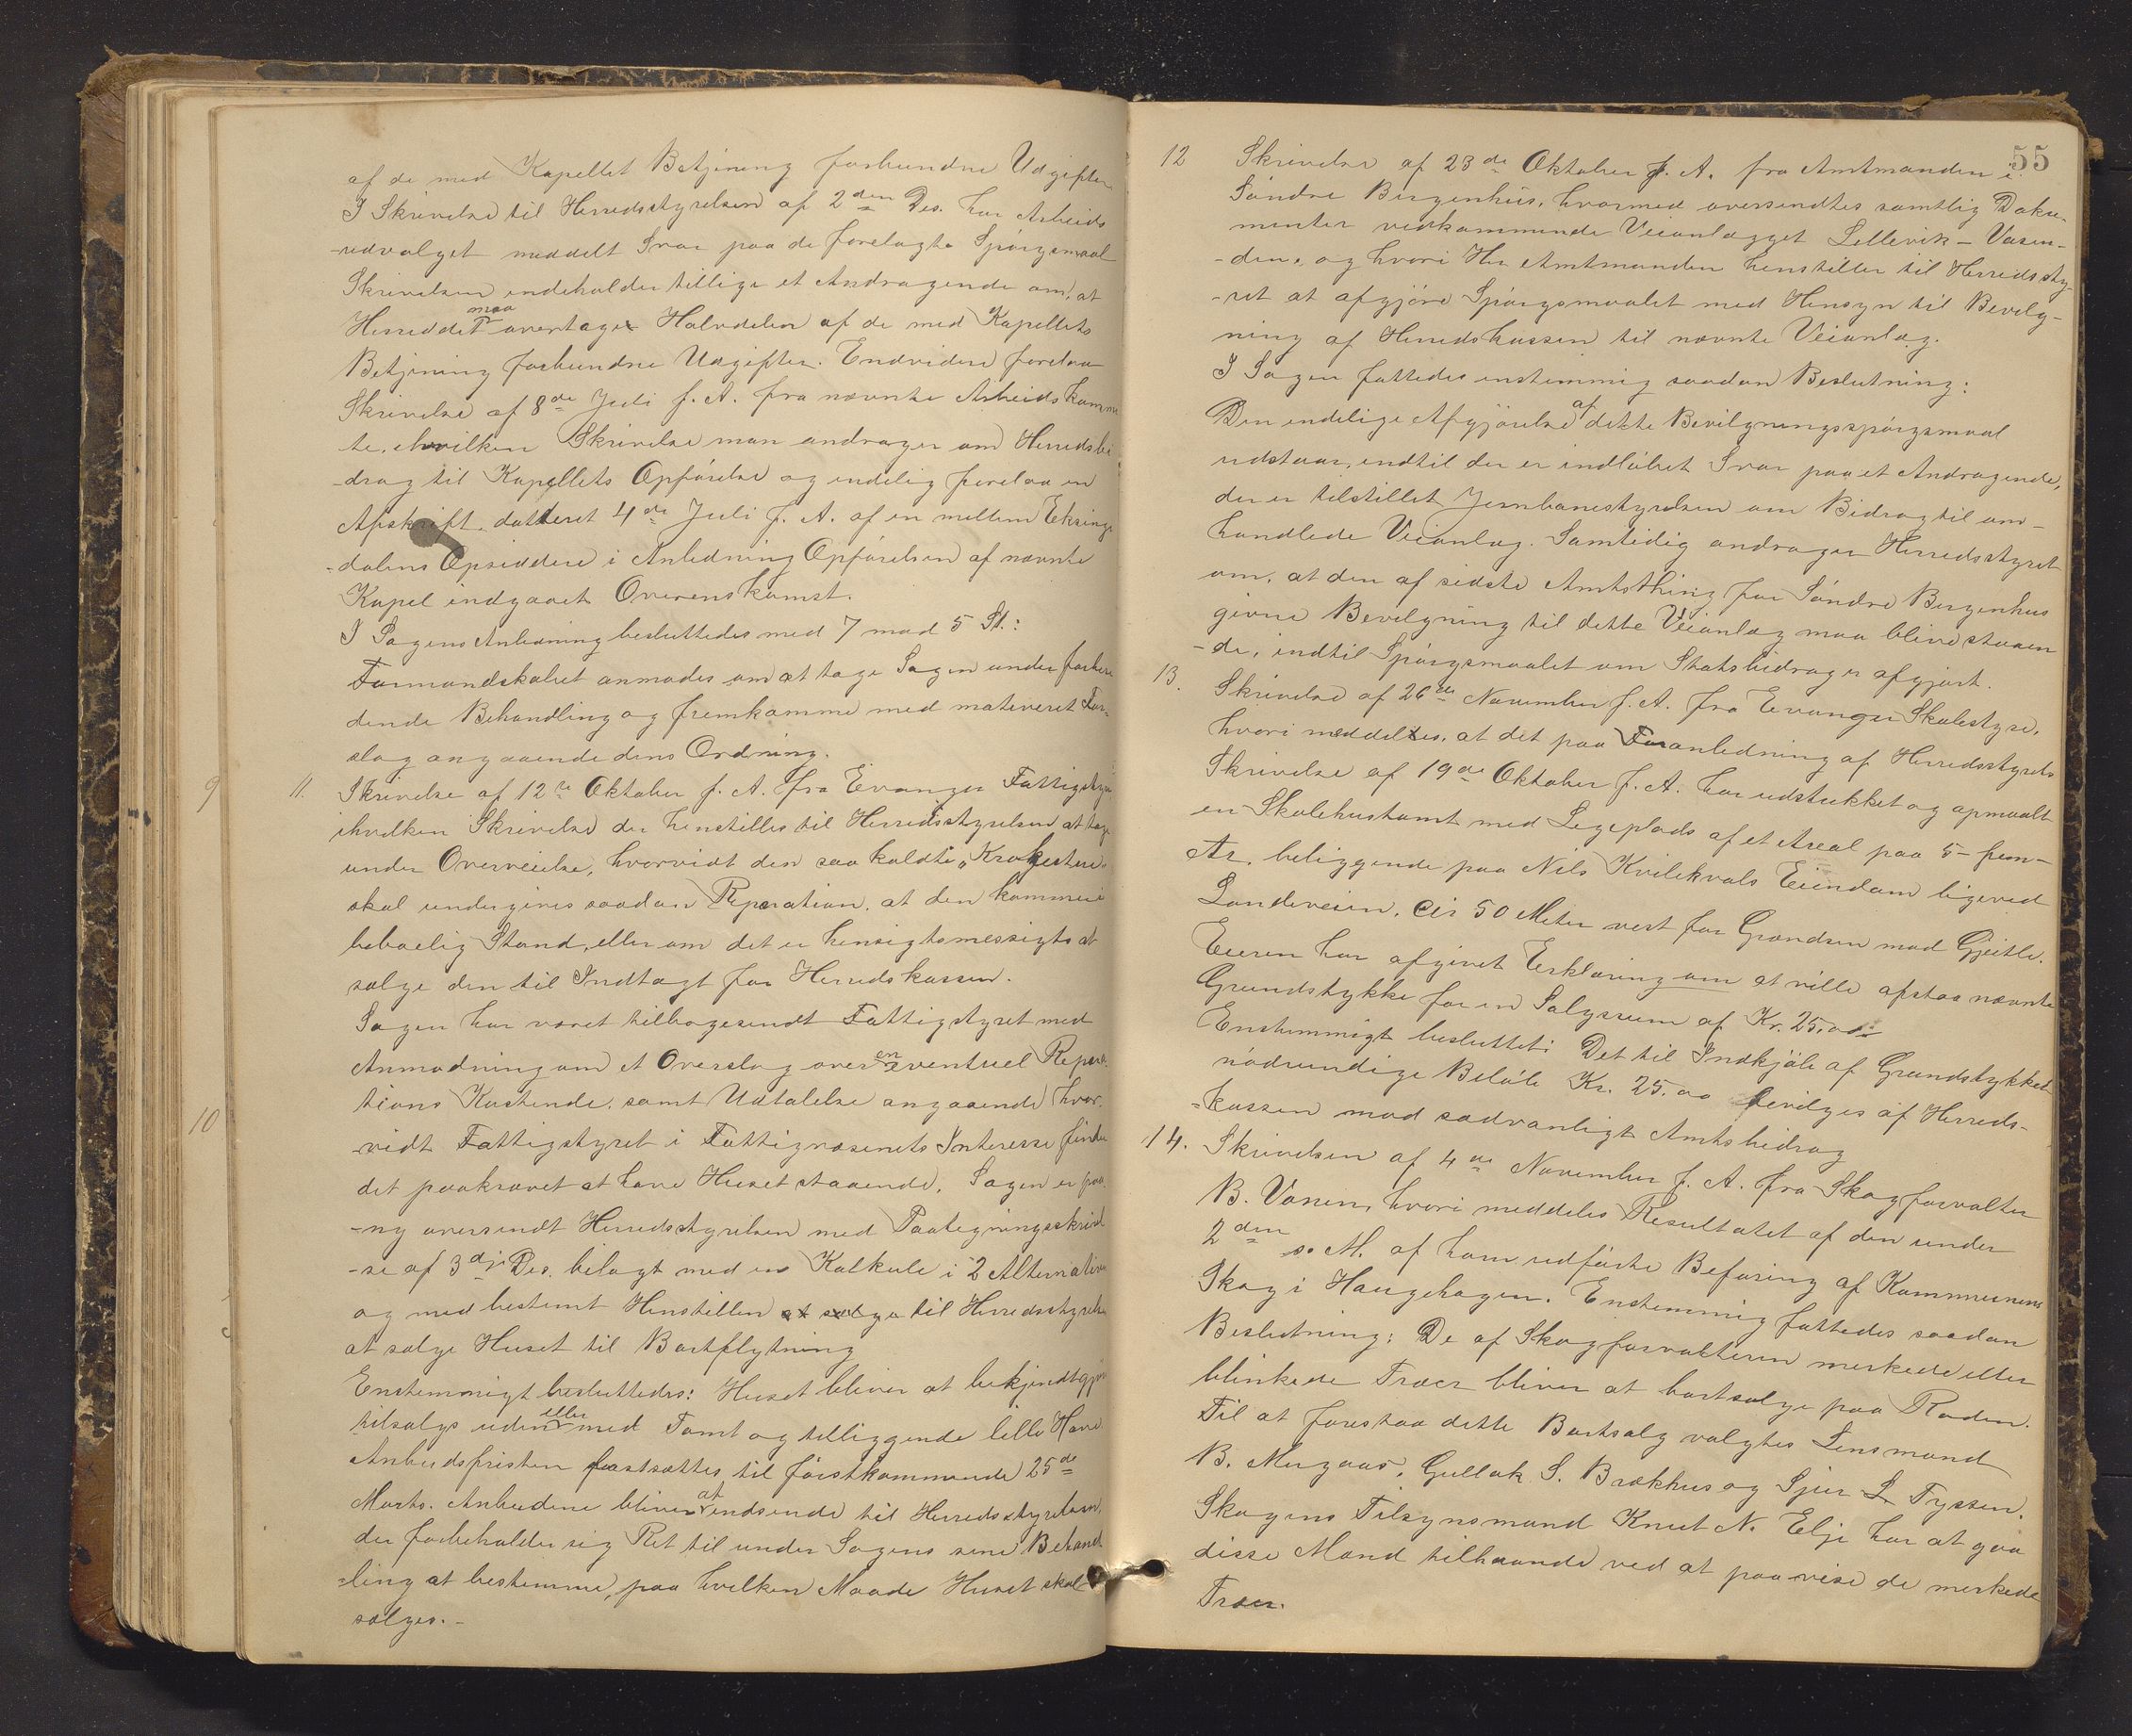 af de med Kapellet Betjening forbundne Udgifter
I Skrivelse til Herredsstyrelsen af 2den Des. har Arbeids
-udvalget meddelt Svar paa de forelagte Spørgsmaal
Skrivelsen indeholder tillige et Andragende om, at
Herreddet maa overtage Halvdelen af de med Kapellets
Betjening forbundne Udgifter. Endvidere forelaa
Skrivelse af 8de Juli f. A. fra nævnte Arbeidskomi
te, ihvilken Skrivelse man andrager om Herredsbi
-drag til Kapellets Opførelse og endelig forelaa en
Afskrift datteret 4de Juli f. A. af en mellem Eksings
-dalens Opsiddere i Anledning Opførelsen af nævnte
Kapel indgaaet Overenskomst.
I Sagens Anledning besluttedes med 7 mod 5 St.:
Formandskabet anmodes om at tage Sagen under forbere
dende Behandling og fremkomme med motiveret For-
slag angaaende dens Ordning.
9
11. Skrivelse af 12te Oktober f. A. fra Evanger Fattigstyre
ihvilken Skrivelse der henstilles til Herredsstyrelsen at tage
under Overveielse, hvorvidt den saakaldte
skal undergives saadan Reparation, at den kommer i
beboelig Stand, eller om det er hensigtsmessigts at
sælge den til Indtægt for Herredskassen.
Sagen har været tilbagesendt Fattigstyret med
Anmodning om et Overslag over en eventuel Repara
tions Kostende, samt Udtalelse angaaende hvor-
10
-vidt Fattigstyret i Fattigvæsenets Interesse finder
det paakrævet at have Huset staaende. Sagen er paa
-ny oversendt Herredsstyrelsen med Paategningsskrivel
-se af 3dje Des. belagt med en Kalkule i 2 Alternativer
og med bestemt Henstillen at sælge til Herredsstyrelsen
at sælge Huset til Bortflytning
Enstemmigt besluttedes: Huset bliver at bekjendtgjøre
tilsalgs uden eller med Tomt og tilliggende lille Have
Anbudsfristen fastsættes til førstkommende 25de
Marts. Anbudene bliver at indsende til Herredsstyrelsen,
der forbeholder sig Ret til under Sagens sene Behand
-ling at bestemme, paa hvilken Maade Huset skal
sælges.-
55
12 Skrivelse af 23de Oktober f. A. fra Amtmanden i
Søndre Bergenhus, hvormed oversendtes samtlig Doku-
menter vedkommende Veianlægget Sellevik - Vasen-
-den, og hvori Hr. Amtmanden henstiller til Herredssty-
-ret at afgjøre Spørgsmaalet med Hensyn til Bevilg-
ning af Herredskassen til nævnte Veianlæg.
I Sagen fattedes enstemmig saadan Beslutning:
Den endelige Afgjørelse af dette Bevilgningsspørgsmaal
udstaar, indtil der er indløbet Svar paa et Andragende,
der er tilstillet Jernbanestyrelsen om Bidrag til om-
handlede Veianlæg. Samtidig andrager Herredsstyret
om, at den af sidste Amtsthing for Søndre Bergenhus
givne Bevilgning til dette Veianlæg maa blive staaen
-de, indtil Spørgsmaalet om Statsbidrag er afgjort.
13. Skrivelse af 26de November f. A. fra Evanger Skolestyre,
hvori meddeltes, at det paa Foranledning af Herredsstyrets
Skrivelse af 19de Oktober f. A. har udstukket og opmaalt
en Skolehustomt med Legeplads af et Areal paa 5 - fem -
Ar, beliggende paa Nils Kvilekvals Eiendom ligeved
Landeveien, Cir 50 Meter vest for Grændsen mod Gjeitle.
Eieren har afgivet Erklæring om at ville afstaa nævnte
Grundstykke for en Salgssum af Kr. 25,00
Enstemmigt besluttet: Det til Indkjøb af Grundstykket
nødvendige Beløb Kr. 25.00 bevilges af Herreds-
-kassen mod sædvanligt Amtsbidrag
14. Skrivelsen af 4de November f. A. fra Skogforvalter
B. Vasen, hvori meddeles Resultatet af den under
2den s. M. af ham udførte Befaring af Kommunens
Skog i Haugehagen. Enstemmig fattedes saadan
Beslutning: De af Skogforvalteren merkede eller
blinkede Træer bliver at bortsælge paa Roden.
Til at forestaa dette Bortsalg valgtes Lensmand
B. Mugaas, Gullak S. Brækhus og Sjur L Fyssen.
Skogens Tilsynsmand Knut N. Elje har at gaa
disse Mænd tilhaande ved at paavise de merkede
Træer.